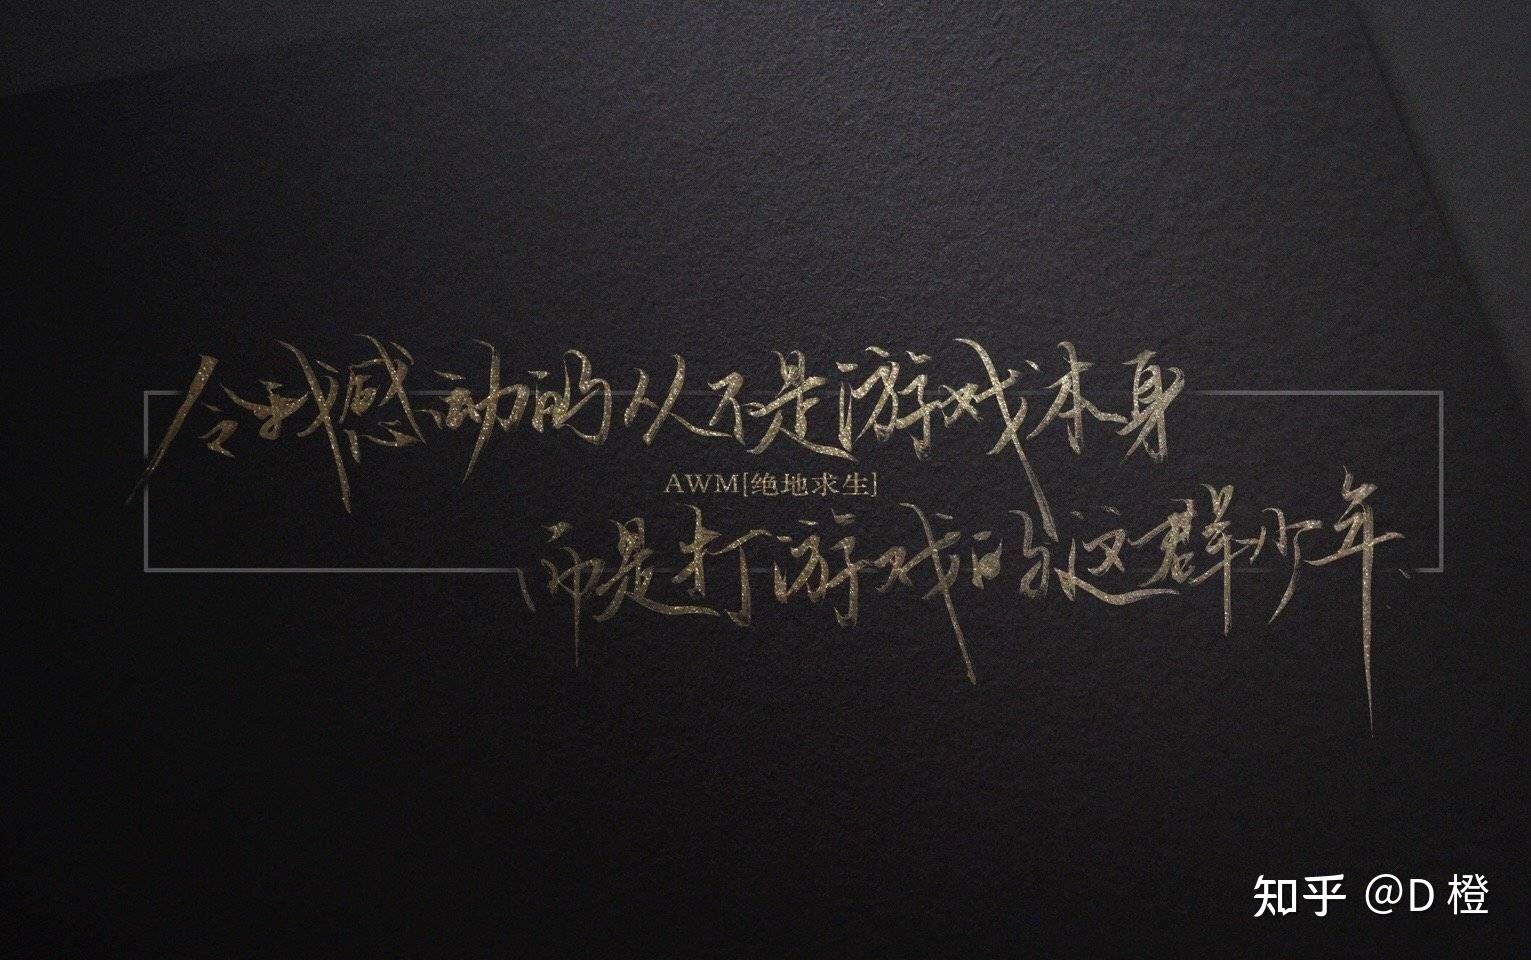 令我感动的从不是游戏本身
AWM[绝地求生]
而是打游戏的这群少年
知乎 @D 橙